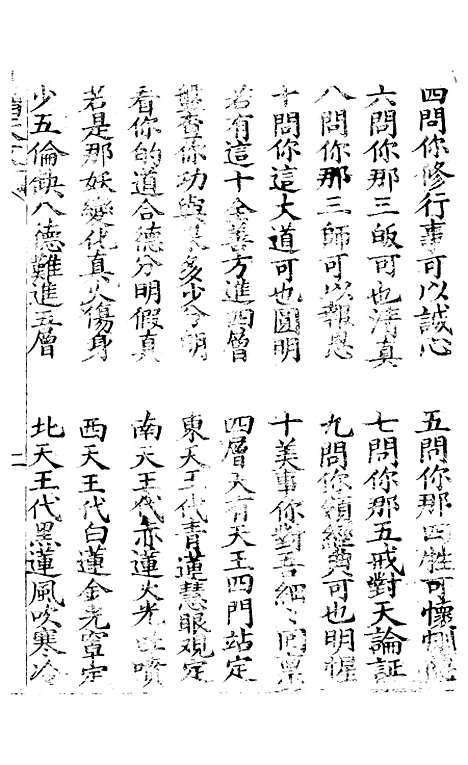 四問你修行事可以誠心　五問你那四牲可懷惻隱
六問你那三皈可也清真　七問你那五戒對天論証
八問你那三師可以報恩　九問你領經典可也明醒
十問你這大道可也圓明　十美事你對吾細細回稟
若有這十全善方進四層　四層天有天王四門站定
盤查你功與果多少分明　東天王代青蓮慧眼观定
看你的道合德分明假真　南天王代赤蓮火光噴
若是那妖變化真火傷身　西天王代白蓮金光罩定
少五倫缺八德難進五層　北天王代黑蓮風吹寒冷